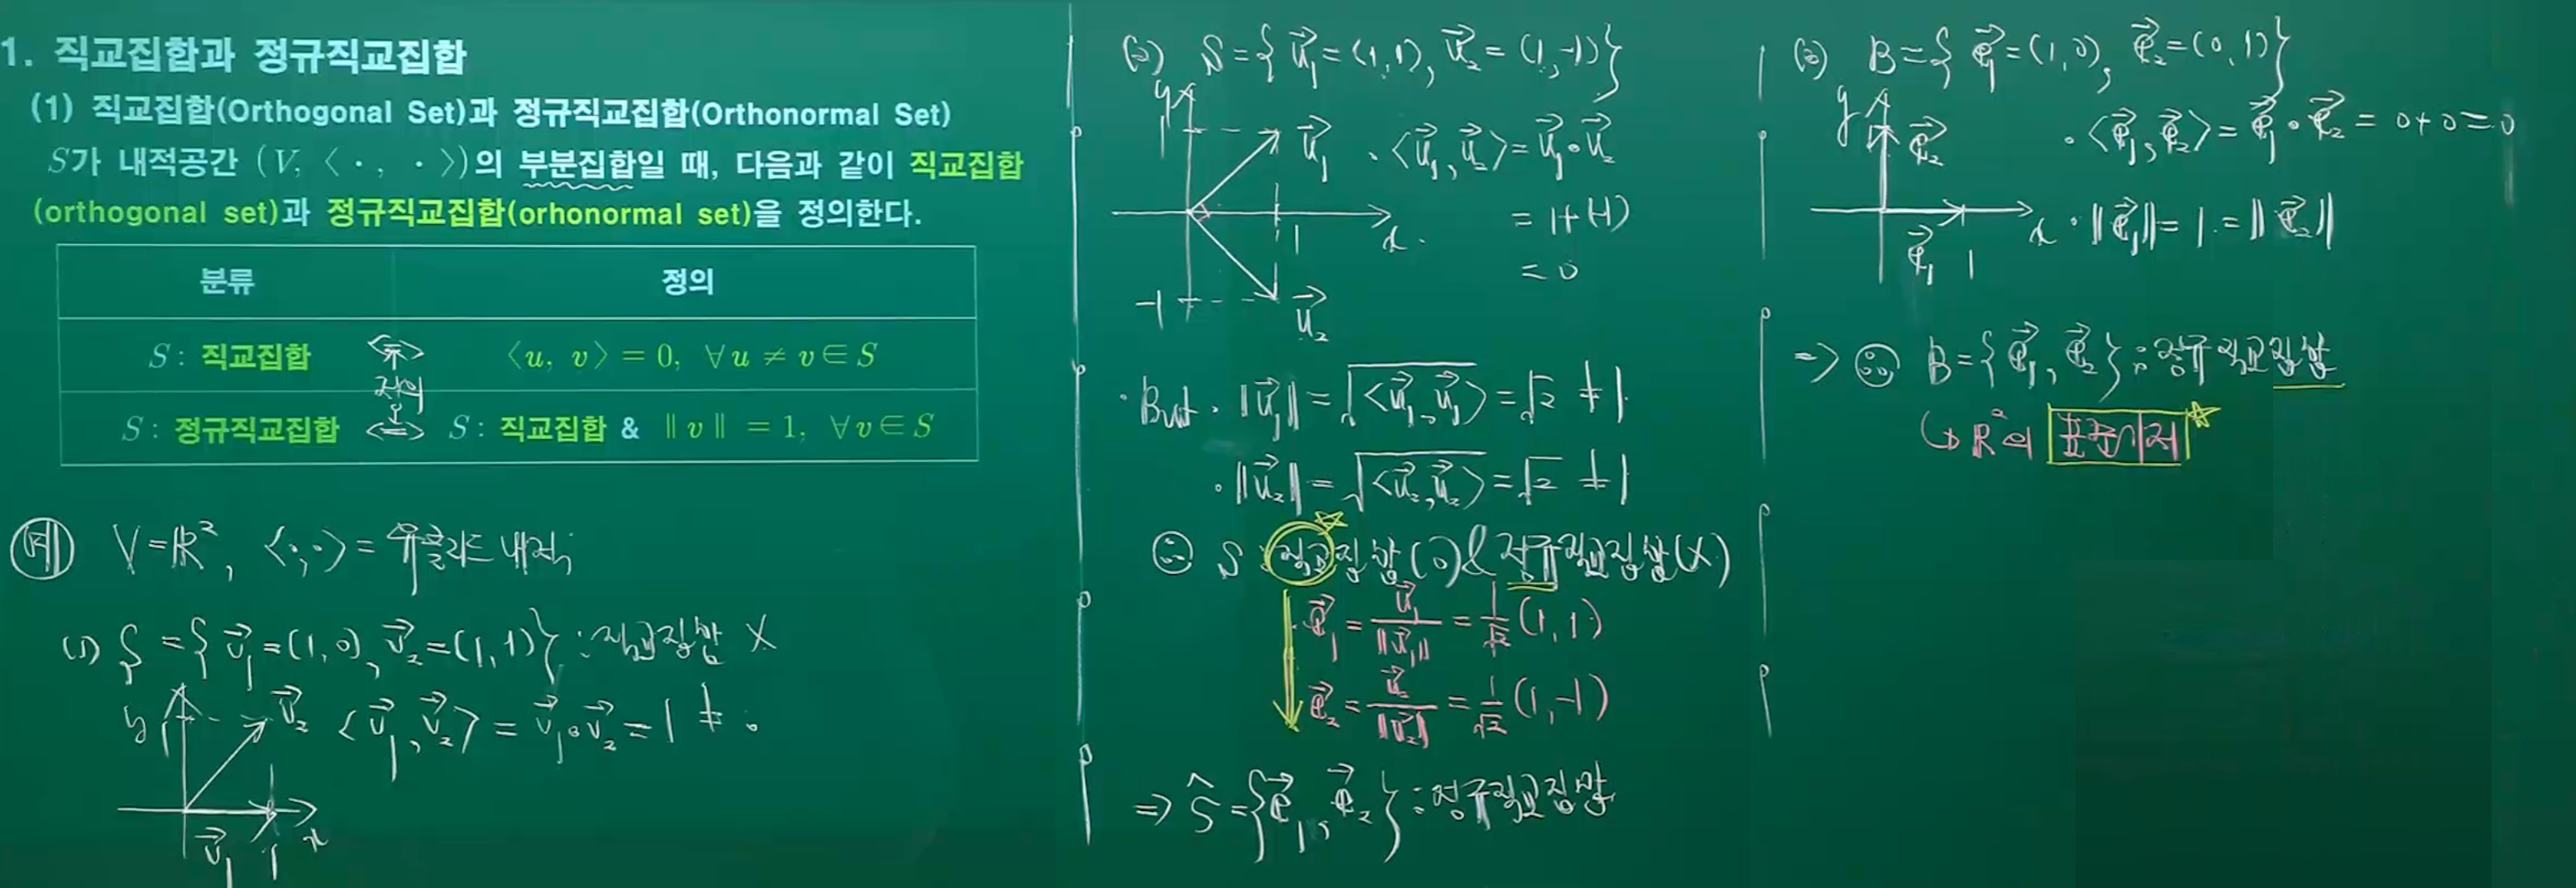 1. 직교집합과 정규직교집합
(1) 직교집합(Orthogonal Set)과 정규직교집합(Orthonormal Set)
S가 내적공간 (V, 〈·, ·〉)의 부분집합일 때, 다음과 같이 직교집합
(orthogonal set)과 정규직교집합(orhonormal set)을 정의한다.
분류 정의
S : 직교집합 ⟺ 〈u, v〉 = 0, ∀u ≠ v ∈ S
정의
S : 정규직교집합 ⟺ S : 직교집합 & ‖v‖ = 1, ∀v ∈ S
예 V = ℝ², 〈·,·〉 = 유클리드 내적
(1) S = {v⃗₁ = (1, 0), v⃗₂ = (1, 1)} : 직교집합 X
y 1 v⃗₂ 〈v⃗₁, v⃗₂〉 = v⃗₁∘v⃗₂ = 1 ≠ 0
v⃗₁ 1 x
(2) S = {u⃗₁ = (1, 1), u⃗₂ = (1, -1)}
y
1 u⃗₁ · 〈u⃗₁, u⃗₂〉 = u⃗₁∘u⃗₂
1 x = 1+(-1)
= 0
-1 u⃗₂
· But · ‖u⃗₁‖ = √〈u⃗₁, u⃗₁〉 = √2 ≠ 1
· ‖u⃗₂‖ = √〈u⃗₂, u⃗₂〉 = √2 ≠ 1
∴ S : 직교집합(O) & 정규직교집합(X)
e⃗₁ = u⃗₁/‖u⃗₁‖ = 1/√2 (1, 1)
e⃗₂ = u⃗₂/‖u⃗₂‖ = 1/√2 (1, -1)
⇒ Ŝ = {e⃗₁, e⃗₂} : 정규직교집합
B = {e⃗₁ = (1, 0), e⃗₂ = (0, 1)}
y e⃗₂ · 〈e⃗₁, e⃗₂〉 = e⃗₁∘e⃗₂ = 0+0 = 0
x · ‖e⃗₁‖ = 1 = ‖e⃗₂‖
e⃗₁ 1
⇒ ∴ B = {e⃗₁, e⃗₂} : 정규직교집합
↳ ℝ²의 표준기저